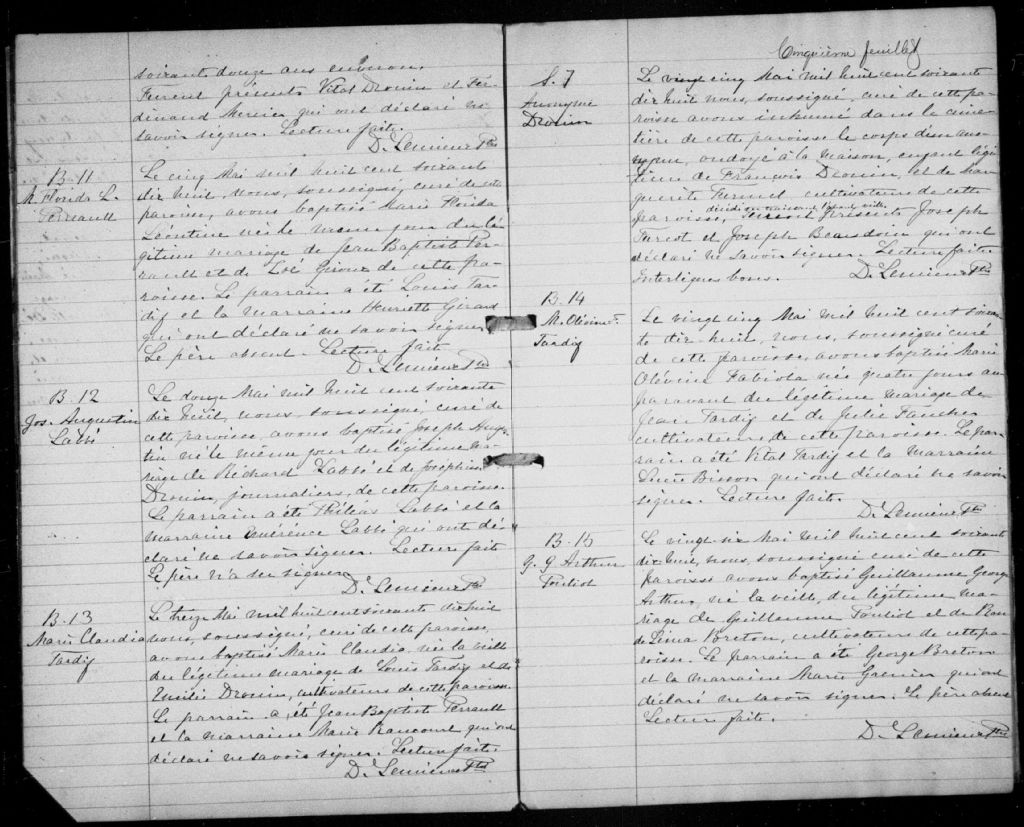 soixante douze ans environ.
Furent présents Vital Drouin et Fer-
dinand Mercier qui ont déclaré ne
savoir signer. Lecture faite.
D. Lemieux Ptre
B. 11
M. Florida L.
Perrault
Le cinq Mai mil huit cent soixante
dix huit, nous, soussigné, curé de cette
paroisse, avons baptisé Marie Florida
Léontine née le même jour du lé-
gitime mariage de Jean Baptiste Per-
rault et de Zoé Giroux de cette pa-
roisse. Le parrain a été Louis Tar-
dif et la marraine Henriette Girard
qui ont déclaré ne savoir signer.
Le père absent. Lecture faite.
D. Lemieux Ptre
B. 12
Jos. Augustin
Labbé
Le douze Mai mil huit cent soixante
dix huit, nous, soussigné, curé de
cette paroisse, avons baptisé Joseph Augus-
tin né le même jour du légitime ma-
riage de Richard Labbé et de Joséphine
Drouin, journaliers, de cette paroisse.
Le parrain a été Philéas Labbé et la
marraine Émérence Labbé qui ont dé-
claré ne savoir signer. Lecture faite
Le père n'a su signer
D. Lemieux Ptre
B. 13
Marie Claudia
Tardif
Le treize Mai mil huit cent soixante dix huit
nous, soussigné, curé de cette paroisse,
avons baptisé Marie Claudia, née la veille
du légitime mariage de Louis Tardif et de
Emilie Drouin, cultivateurs de cette paroisse.
Le parrain a été Jean Baptiste Perrault
et la marraine Marie Rancourt qui ont
déclaré ne savoir signer. Lecture faite.
D. Lemieux Ptre
Cinquième feuillet
S. 7
Anonyme
Drouin
Le vingt cinq Mai mil huit cent soixante
dix huit nous, soussigné, curé de cette pa-
roisse avons inhumé dans le cime-
tière de cette paroisse le corps d'un ano-
nyme, ondoyé à la maison, enfant légi-
time de François Drouin, et de Mar-
guerite cultivateurs de cette
paroisse, Furent présents Joseph
et Joseph Beaudoin qui ont
déclaré ne savoir signer. Lecture faite.
Interlignes bons. D. Lemieux Ptre
B. 14
M. Olévine F.
Tardif
Le vingt cinq Mai mil huit cent soixan-
te dix huit, nous, soussigné curé
de cette paroisse, avons baptisé Marie
Olévine Fabiola née quatre jours au-
paravant du légitime mariage de
Jean Tardif et de Julie Faucher
cultivateurs, de cette paroisse. Le par-
rain a été Vital Tardif et la marraine
Bisson qui ont déclaré ne savoir
signer. Lecture faite.
D. Lemieux Ptre
B. 15
G. G. Arthur
Pouliot
Le vingt six Mai mil huit cent soixante
dix huit, nous, soussigné curé de cette
paroisse avons baptisé Guillaume George
Arthur, né la veille, du légitime ma-
riage de Guillaume Pouliot et de Rose
de Lima Breton, cultivateurs de cette pa-
roisse. Le parrain a été George Breton
et la marraine Marie Grenier qui ont
déclaré ne savoir signer. Le père absent
Lecture faite.
D. Lemieux Ptre